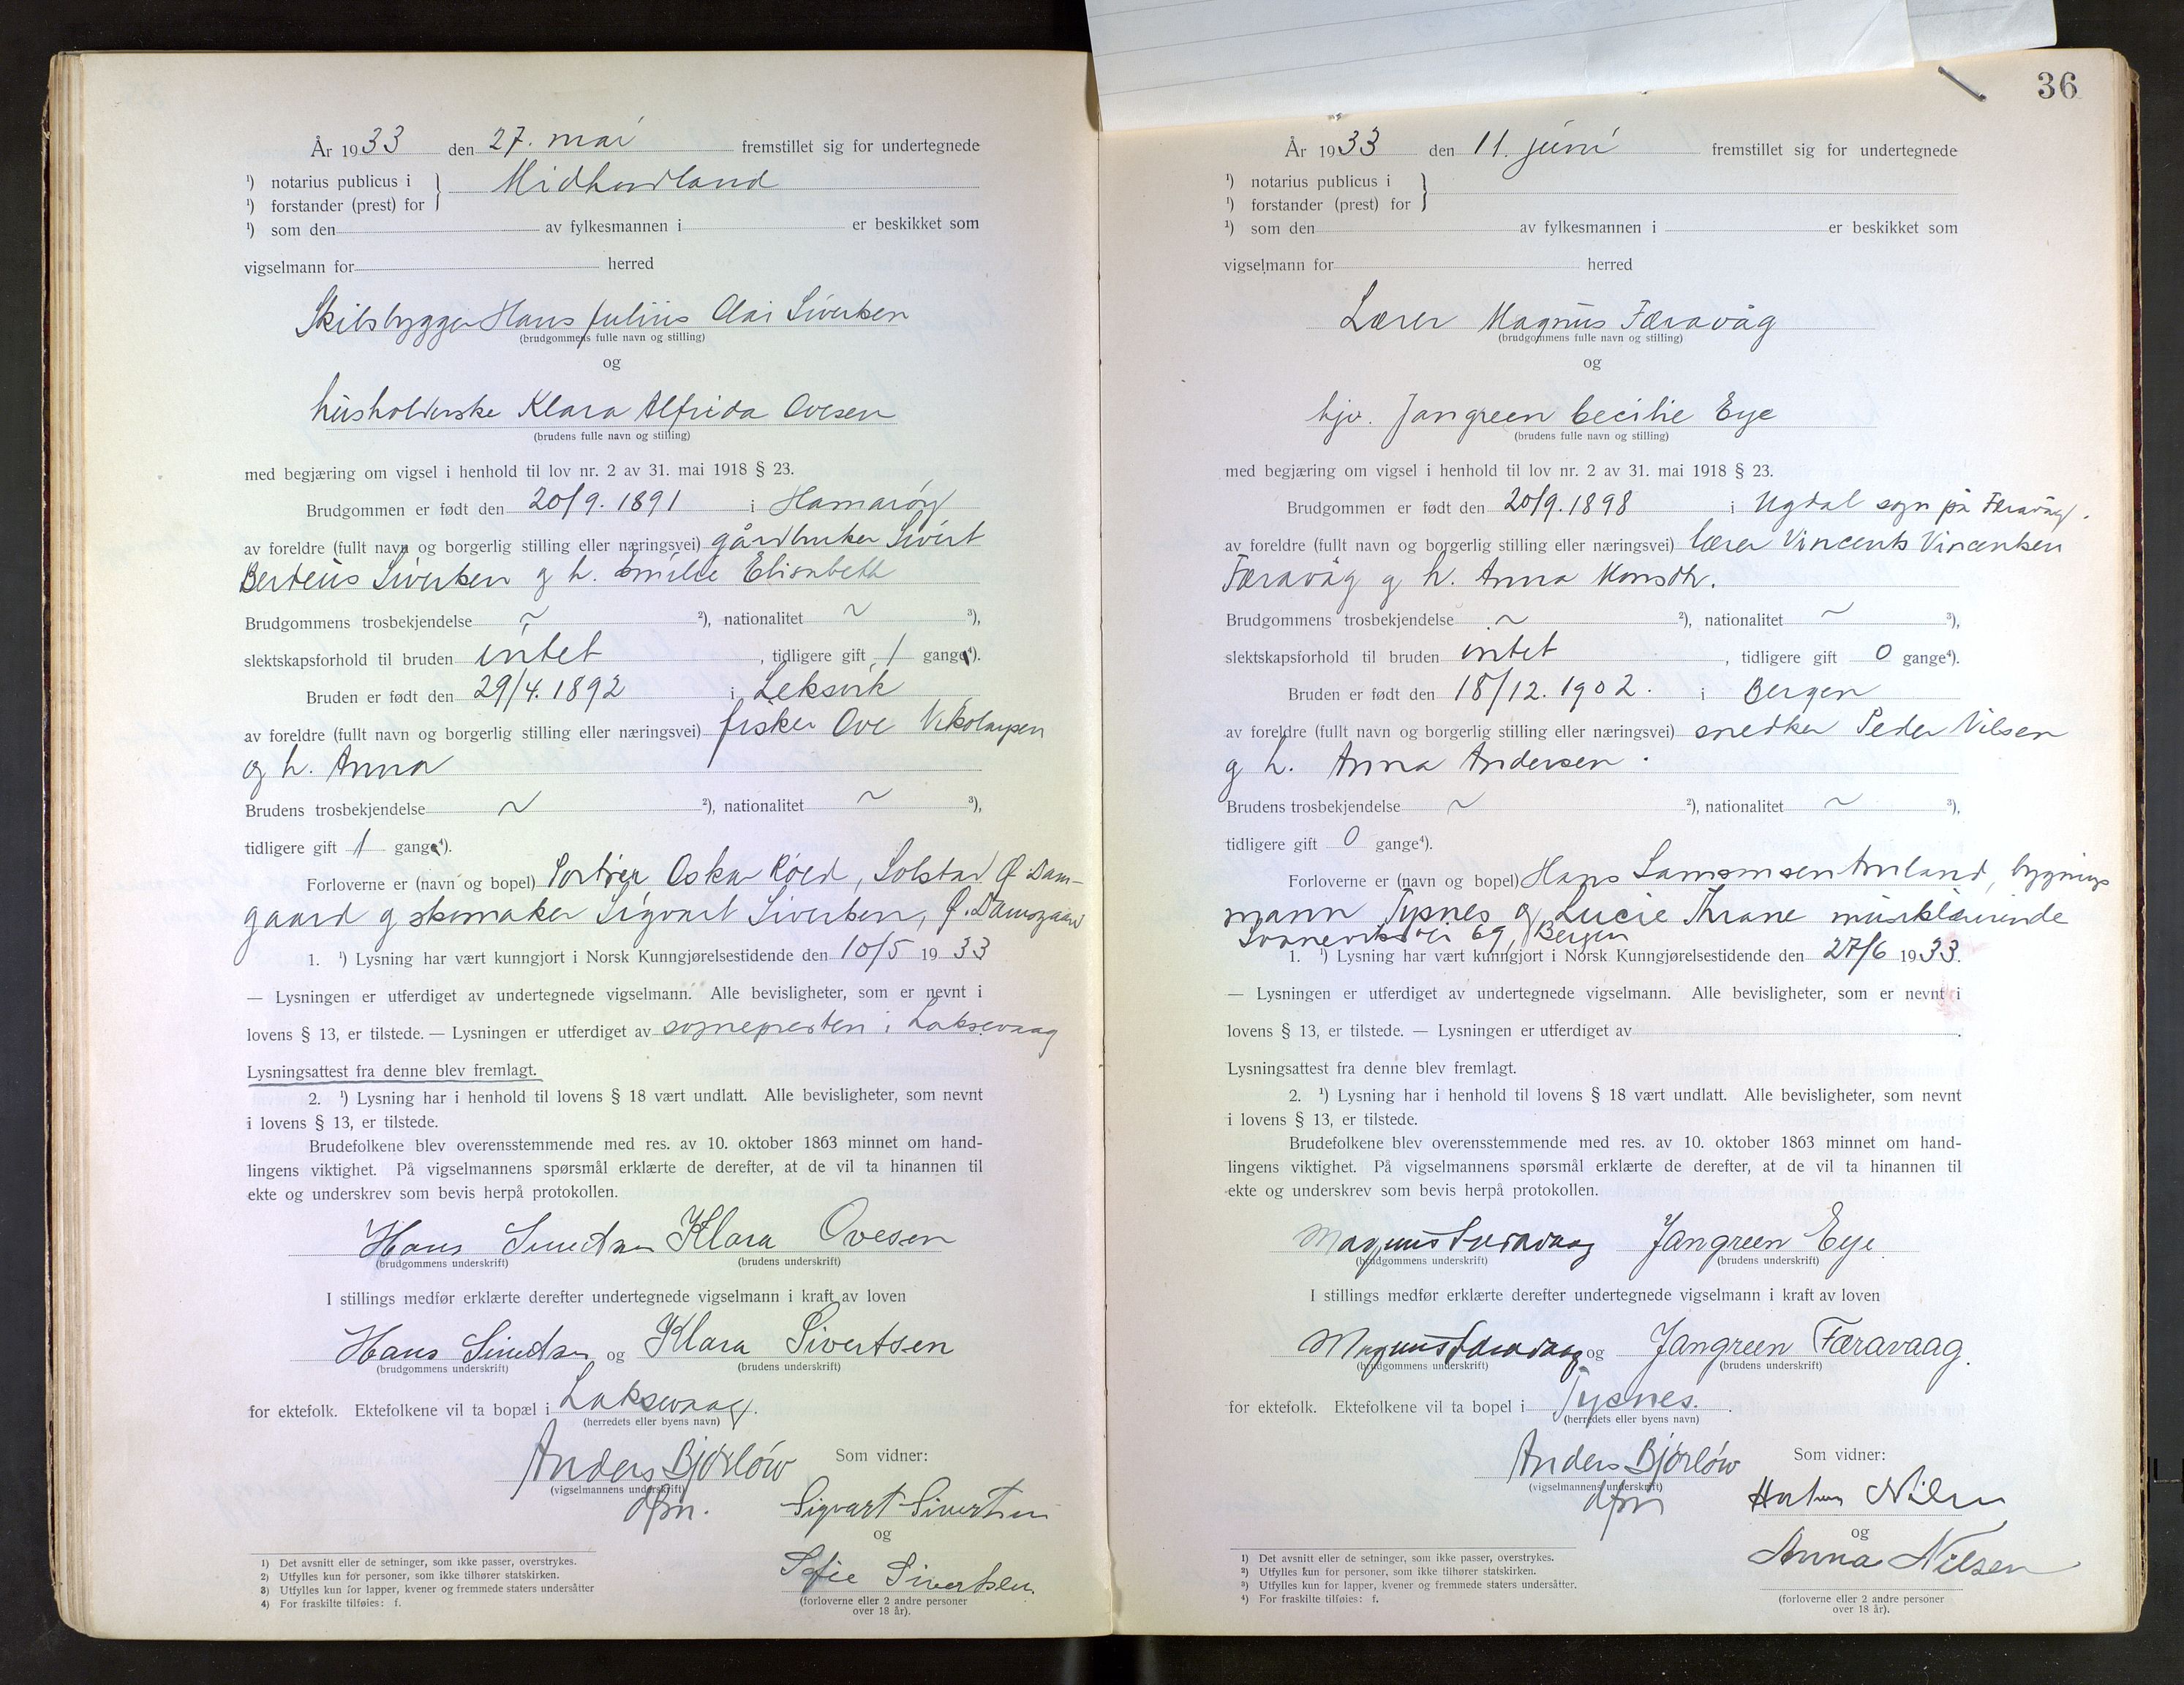 År 1933 den 27. mai fremstillet sig for undertegnede
¹) notarius publicus i } Midhordland
¹) forstander (prest) for
¹) som den av fylkesmannen i er beskikket som
vigselmann for herred
Skibsbygger Hans Julius Olai Sivertsen
(brudgommens fulle navn og stilling)
og
husholderske Klara Alfrida Ovesen
(brudens fulle navn og stilling)
med begjæring om vigsel i henhold til lov nr. 2 av 31. mai 1918 § 23.
Brudgommen er født den 20/9. 1891 i Hamarøy
av foreldre (fullt navn og borgerlig stilling eller næringsvei) gårdbruker Sivert
Berteus Sivertsen og h. Emilie Elisabeth
Brudgommens trosbekjendelse ~ ²), nationalitet ~ ³),
slektskapsforhold til bruden intet, tidligere gift 1 gang⁴).
Bruden er født den 29/4. 1892 i Leksvik
av foreldre (fullt navn og borgerlig stilling eller næringsvei) fisker Ove Nikolaysen
og h. Anna
Brudens trosbekjendelse ~ ²), nationalitet ~ ³),
tidligere gift 1 gang⁴).
Forloverne er (navn og bopel) Oskar Røed, Solstad Ø. Dam-
gaard og skomaker Sigvart Sivertsen, Ø. Damsgaard
1. ¹) Lysning har vært kunngjort i Norsk Kunngjørelsestidende den 10/5 1933
— Lysningen er utferdiget av undertegnede vigselmann. Alle bevisligheter, som er nevnt i
lovens § 13, er tilstede. — Lysningen er utferdiget av sognepresten i Laksevaag
Lysningsattest fra denne blev fremlagt.
2. ¹) Lysning har i henhold til lovens § 18 vært undlatt. Alle bevisligheter, som nevnt
i lovens § 13, er tilstede.
Brudefolkene blev overensstemmende med res. av 10. oktober 1863 minnet om hand-
lingens viktighet. På vigselmannens spørsmål erklærte de derefter, at de vil ta hinannen til
ekte og underskrev som bevis herpå protokollen.
Hans Sivertsen Klara Ovesen
(brudgommens underskrift) (brudens underskrift)
I stillings medfør erklærte derefter undertegnede vigselmann i kraft av loven
Hans Sivertsen og Klara Sivertsen
(brudgommens underskrift) (brudens underskrift)
for ektefolk. Ektefolkene vil ta bopæl i Laksevaag.
(herredets eller byens navn)
Anders Bjørlöw Som vidner:
(vigselmannens underskrift)
dfm. Sigvart Sivertsen
og
Sofie Sivertsen.
(forloverne eller 2 andre personer
over 18 år).
1) Det avsnitt eller de setninger, som ikke passer, overstrykes.
2) Utfylles kun for personer, som ikke tilhører statskirken.
3) Utfylles kun for lapper, kvener og fremmede staters undersåtter
4) For fraskilte tilføies: f.
36
År 1933 den 11. juni fremstillet sig for undertegnede
¹) notarius publicus i }
¹) forstander (prest) for
¹) som den av fylkesmannen i er beskikket som
vigselmann for herred
Lærer Magnus Færavåg
(brudgommens fulle navn og stilling)
og
hjv. Jangreen Cecilie Eye
(brudens fulle navn og stilling)
med begjæring om vigsel i henhold til lov nr. 2 av 31. mai 1918 § 23.
Brudgommen er født den 20/9. 1898 i Ugdal sogn på Færavåg.
av foreldre (fullt navn og borgerlig stilling eller næringsvei) lærer Vincents Vincentsen
Færavåg og h. Anna Monsdtr.
Brudgommens trosbekjendelse ~ ²), nationalitet ~ ³),
slektskapsforhold til bruden intet, tidligere gift 0 gange⁴).
Bruden er født den 18/12. 1902. i Bergen
av foreldre (fullt navn og borgerlig stilling eller næringsvei) snedker Peder Nilsen
og h. Anna Andersen.
Brudens trosbekjendelse ~ ²), nationalitet ~ ³),
tidligere gift 0 gange⁴).
Forloverne er (navn og bopel) Hans Samsonsen Amland, bygnings
mann Tysnes og Lucie Thrane musiklærerinde
Svaneviksvei 69, Bergen
1. ¹) Lysning har vært kunngjort i Norsk Kunngjørelsestidende den 27/6 1933.
— Lysningen er utferdiget av undertegnede vigselmann. Alle bevisligheter, som er nevnt i
lovens § 13, er tilstede. — Lysningen er utferdiget av .
Lysningsattest fra denne blev fremlagt.
2. ¹) Lysning har i henhold til lovens § 18 vært undlatt. Alle bevisligheter, som nevnt
i lovens § 13, er tilstede.
Brudefolkene blev overensstemmende med res. av 10. oktober 1863 minnet om hand-
lingens viktighet. På vigselmannens spørsmål erklærte de derefter, at de vil ta hinannen til
ekte og underskrev som bevis herpå protokollen.
Magnus Færavaag Jangreen Eye
(brudgommens underskrift) (brudens underskrift)
I stillings medfør erklærte derefter undertegnede vigselmann i kraft av loven
Magnus Færavaag og Jangreen Færavaag.
(brudgommens underskrift) (brudens underskrift)
for ektefolk. Ektefolkene vil ta bopel i Tysnes.
(herredets eller byens navn)
Anders Bjørlöw Som vidner:
(vigselmannens underskrift)
dfm Nilsen
og
Anna Nilsen
(forloverne eller 2 andre personer
over 18 år).
1) Det avsnitt eller de setninger, som ikke passer, overstrykes.
2) Utfylles kun for personer, som ikke tilhører statskirken.
3) Utfylles kun for lapper, kvener og fremmede staters undersåtter.
4) For fraskilte tilføies: f.